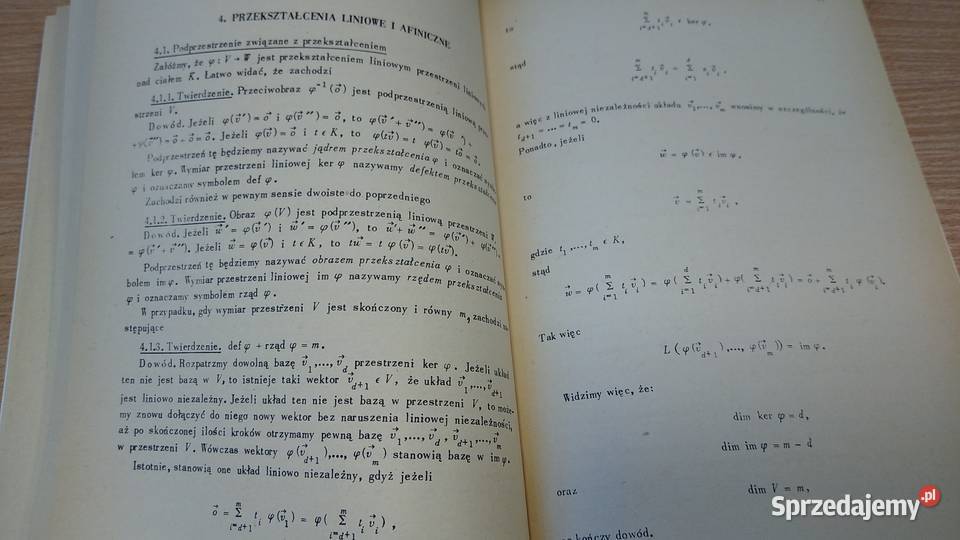 4. PRZEKSZTAŁCENIA LINIOWE I AFINICZNE
4.1. Podprzestrzenie związane z przekształceniem
Załóżmy, że φ : V → W jest przekształceniem liniowym przestrzeni liniowych
nad ciałem K. Łatwo widać, że zachodzi
4.1.1. Twierdzenie. Przeciwobraz φ⁻¹(o⃗) jest podprzestrzenią liniową
strzeni V.
Dowód. Jeżeli φ(v⃗') = o⃗ i φ(v⃗'') = o⃗, to φ(v⃗' + v⃗'') = φ(v⃗') +
+φ(v⃗'') = o⃗ + o⃗ = o⃗. Jeżeli φ(v⃗) = o⃗ i t ϵ K, to φ(tv⃗) = t φ(v⃗) = to⃗ = o⃗.
Podprzestrzeń tę będziemy nazywać jądrem przekształcenia φ i oznaczać
lem ker φ. Wymiar przestrzeni liniowej ker φ nazywamy defektem
φ i oznaczamy symbolem def φ.
Zachodzi również w pewnym sensie dwoiste do poprzedniego
4.1.2. Twierdzenie. Obraz φ(V) jest podprzestrzenią liniową przestrzeni W.
Dowód. Jeżeli w⃗' = φ(v⃗') i w⃗'' = φ(v⃗''), to w⃗' + w⃗'' = φ(v⃗') + φ(v⃗'') =
= φ(v⃗' + v⃗''). Jeżeli w⃗ = φ(v⃗) i t ϵ K, to tw⃗ = t φ(v⃗) = φ(tv⃗).
Podprzestrzeń tę będziemy nazywać obrazem przekształcenia φ i oznaczać
bolem im φ. Wymiar przestrzeni liniowej im φ nazywamy rzędem przekształcenia
φ i oznaczamy symbolem rząd φ.
W przypadku, gdy wymiar przestrzeni V jest skończony i równy m, zachodzi
stępujące
4.1.3. Twierdzenie. def φ + rząd φ = m.
Dowód. Rozpatrzmy dowolną bazę v⃗₁,..., v⃗_d przestrzeni ker φ. Jeżeli układ
ten nie jest bazą w V, to istnieje taki wektor v⃗_{d+1} ϵ V, że układ v⃗₁,..., v⃗_{d+1}
jest liniowo niezależny. Jeżeli układ ten nie jest bazą w przestrzeni V, to może-
my znowu dołączyć do niego nowy wektor bez naruszenia liniowej niezależności,
aż po skończonej ilości kroków otrzymamy pewną bazę v⃗₁,..., v⃗_d, v⃗_{d+1},..., v⃗_m
w przestrzeni V. Wówczas wektory φ(v⃗_{d+1}),..., φ(v⃗_m) stanowią bazę w im φ.
Istotnie, stanowią one układ liniowo niezależny, gdyż jeżeli
o⃗ = Σ_{i=d+1}^{m} t_i φ(v⃗_i) = φ( Σ_{i=d+1}^{m} t_i v⃗_i ) ,
to
Σ_{i=d+1}^{m} t_i v⃗_i ϵ ker φ,
stąd
Σ_{i=d+1}^{m} t_i v⃗_i = Σ_{i=1}^{d} t_i v⃗_i ,
a więc z liniowej niezależności układu v⃗₁,..., v⃗_m wnosimy w szczególności, że
t_{d+1} = ... = t_m = 0.
Ponadto, jeżeli
w⃗ = φ(v⃗) ϵ im φ,
to
v⃗ = Σ_{i=1}^{m} t_i v⃗_i ,
gdzie t₁,..., t_m ϵ K,
stąd
w⃗ = φ( Σ_{i=1}^{m} t_i v⃗_i ) = φ( Σ_{i=1}^{d} t_i v⃗_i ) + φ( Σ_{i=d+1}^{m} t_i v⃗_i ) = o⃗ + Σ_{i=d+1}^{m} t_i φ(v⃗_i),
Tak więc
L(φ(v⃗_{d+1}),..., φ(v⃗_m)) = im φ.
Widzimy więc, że:
dim ker φ = d,
dim im φ = m - d
oraz
dim V = m,
kończy dowód.
Sprzedajemy.pl